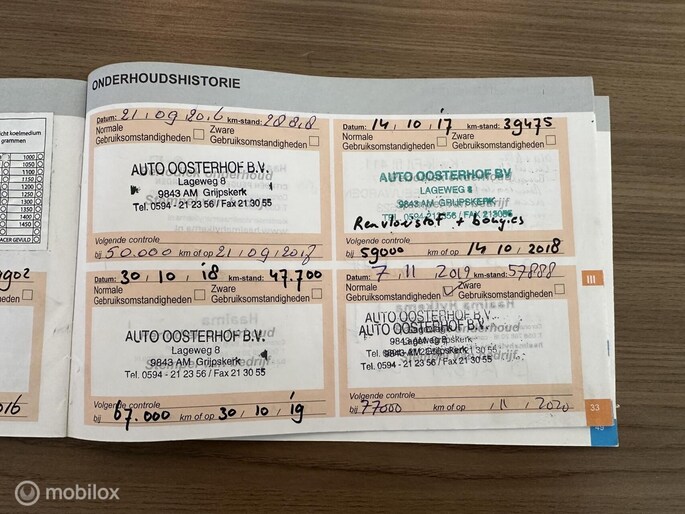 ONDERHOUDSHISTORIE
Datum: 21, 09, 2016 km-stand: 28818
Normale Gebruiksomstandigheden
Zware Gebruiksomstandigheden
AUTO OOSTERHOF B.V.
Lageweg 8
9843 AM Grijpskerk
Tel. 0594 - 21 23 56 / Fax 21 30 55
Volgende controle
bij 50.000 km of op 21, 09, 2017
Datum: 14, 10, 17 km-stand: 39475
Normale Gebruiksomstandigheden
Zware Gebruiksomstandigheden
AUTO OOSTERHOF BV
LAGEWEG 8
9843 AM GRIJPSKERK
Remvloeistof + bougies
Volgende controle
bij 59000 km of op 14, 10, 2018
Datum: 30, 10, 18 km-stand: 47.700
Normale Gebruiksomstandigheden
Zware Gebruiksomstandigheden
AUTO OOSTERHOF B.V.
Lageweg 8
9843 AM Grijpskerk
Tel. 0594 - 21 23 56 / Fax 21 30 55
Volgende controle
bij 67.000 km of op 30, 10, 19
Datum: 7, 11, 2019 km-stand: 57888
Normale Gebruiksomstandigheden
Zware Gebruiksomstandigheden
AUTO OOSTERHOF B.V.
AUTO OOSTERHOF B.V.
Volgende controle
bij 77000 km of op , 11, 2020
III
33
icht koelmedium
grammen
1000
1050
1100
1150
1200
1250
1300
1350
1400
1450
ACER GEVULD
mobilox